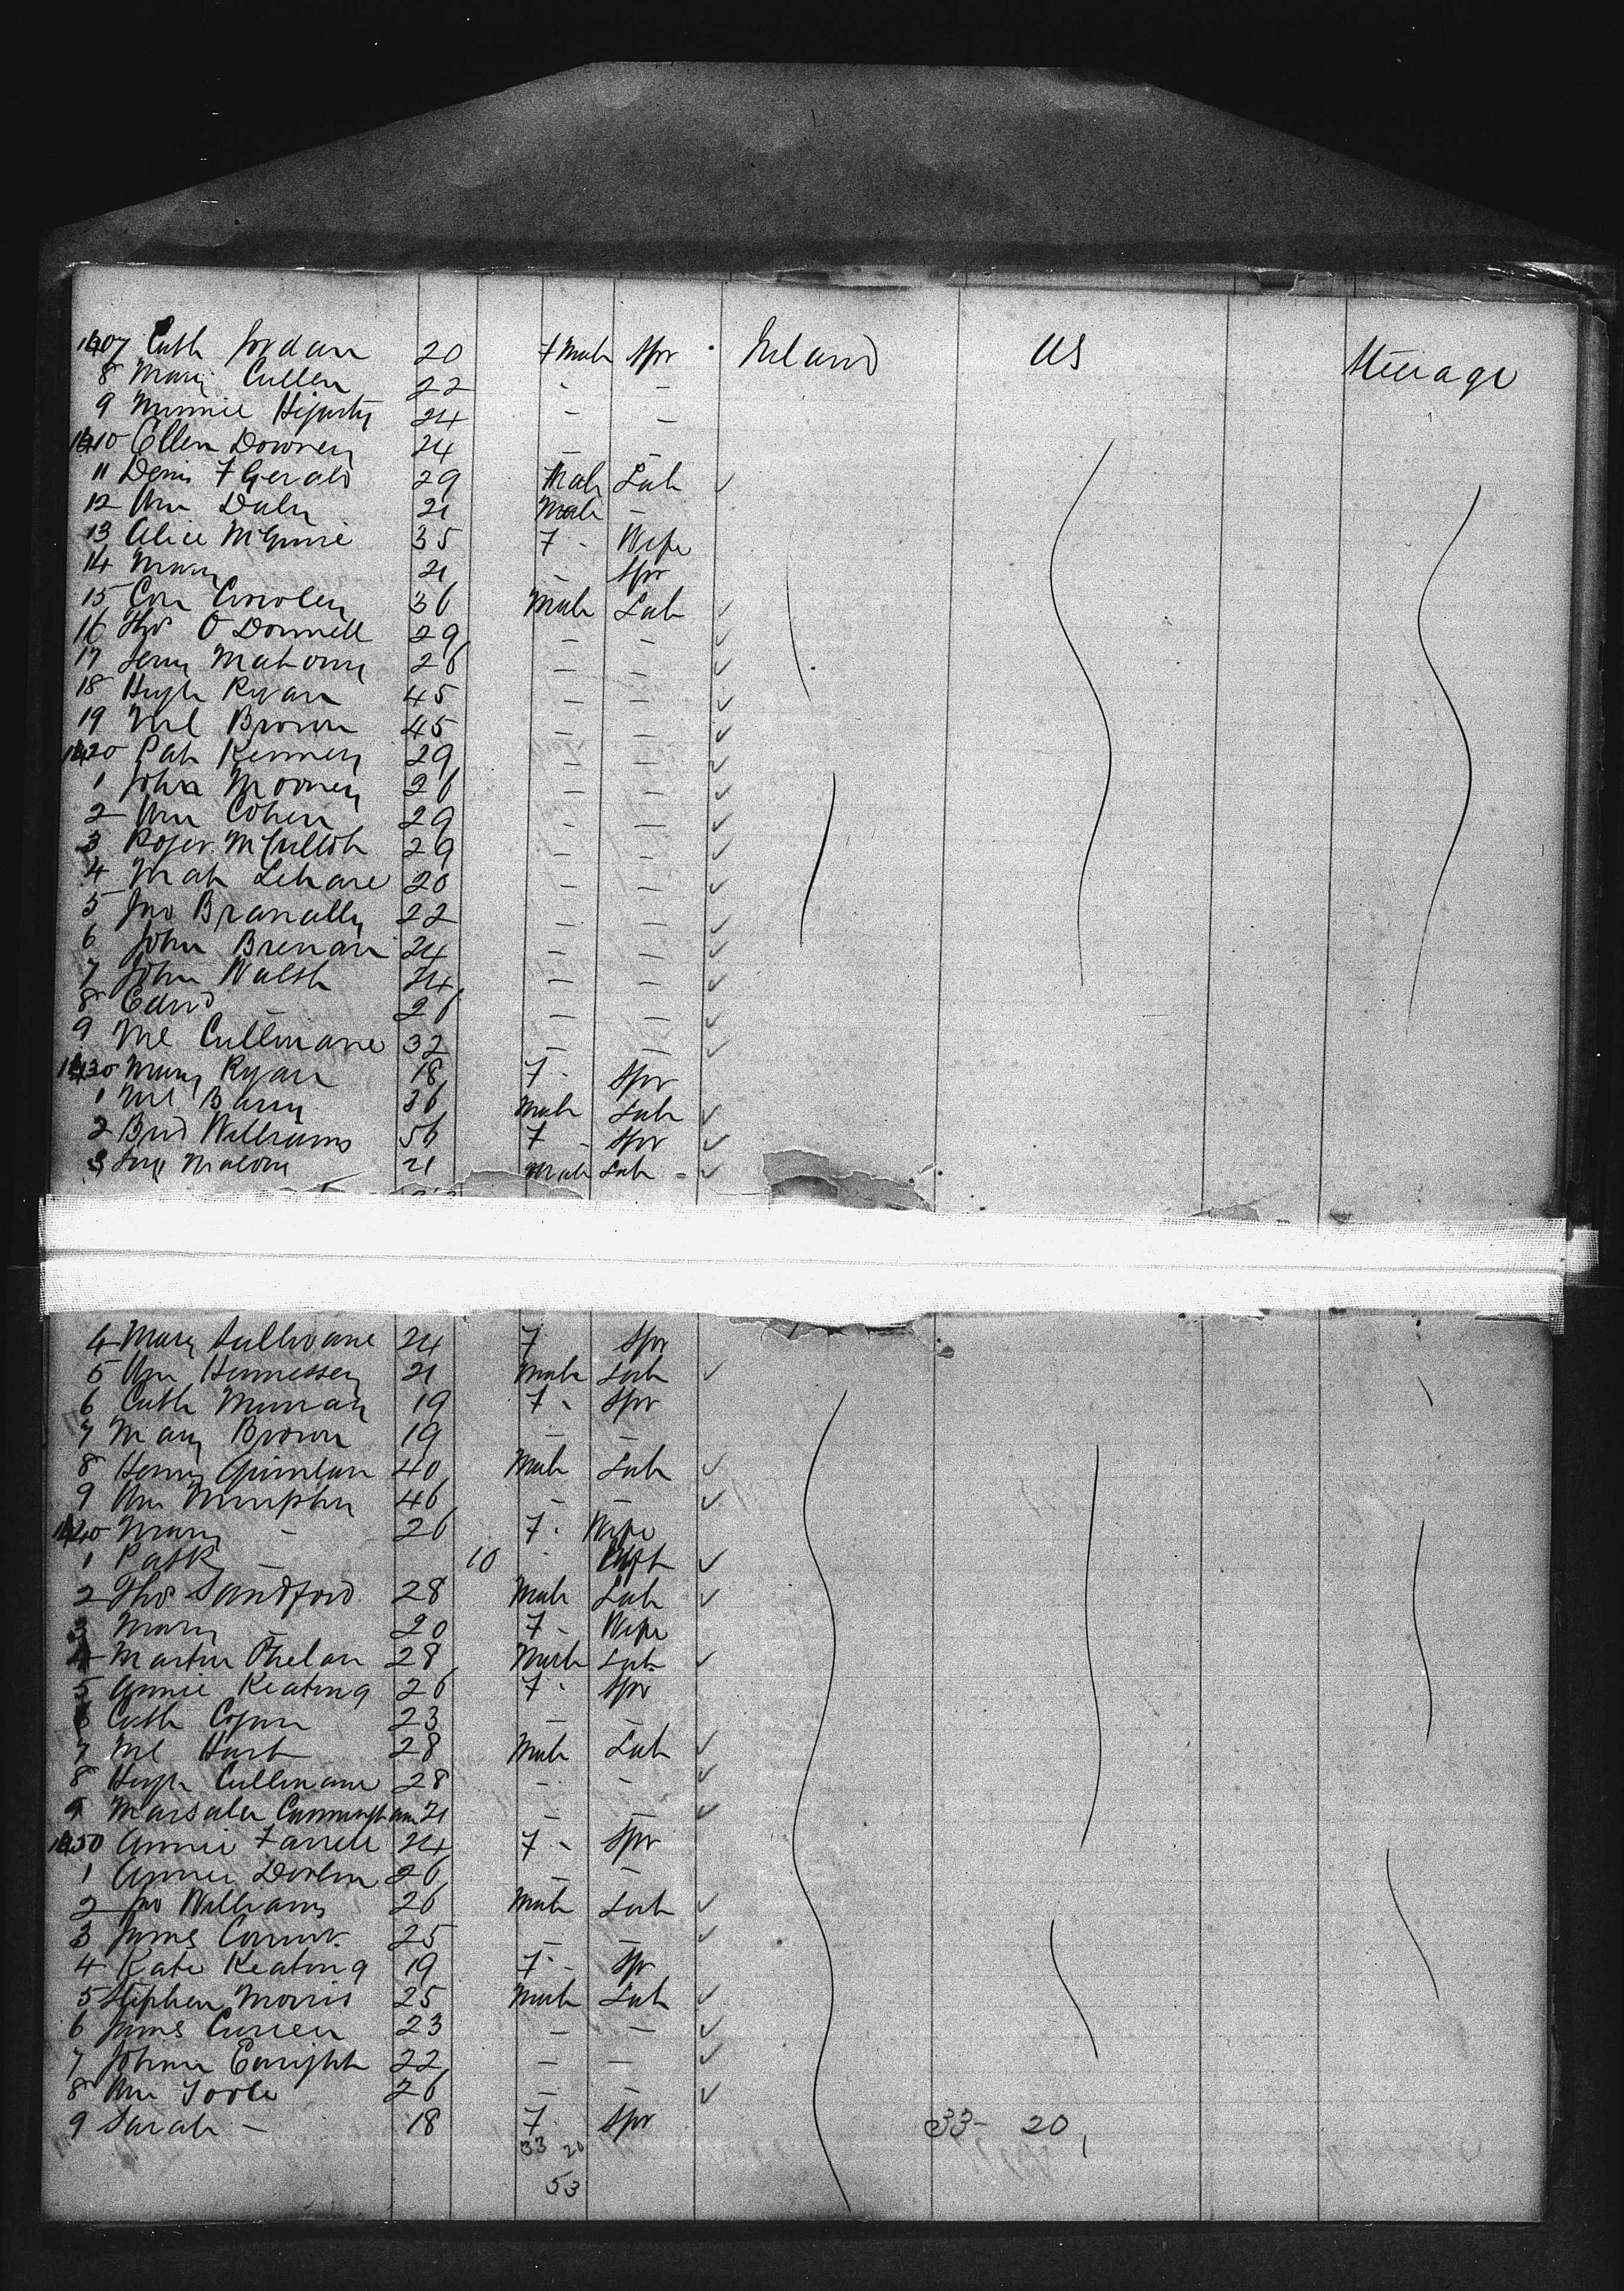 1407 Cath Jordan 20 F Male Spr Ireland US Steerage
8 Mary Cullen 22 - -
9 Minnie Hegarty 24 - -
1410 Ellen Downey 24 - -
11 Denis FGerald 29 Male Lab ✓
12 Wm Daly 21 Male -
13 Alice McGuire 35 F - Wife
14 Mary 21 - Spr
15 Con Crowley 36 Male Lab ✓
16 Thos O Donnell 29 - - ✓
17 Jerry Mahony 26 - - ✓
18 Hugh Ryan 45 - - ✓
19 Ml Brown 45 - - ✓
1420 Pat Kenney 29 - - ✓
1 John Mooney 26 - - ✓
2 Wm Cohen 29 - - ✓
3 Roger McCulloh 29 - - ✓
4 Mat Lehane 20 - - ✓
5 Jno Branally 22 - - ✓
6 John Brenan 24 - - ✓
7 John Walsh 24 - - ✓
8 Edwd - 26 - - ✓
9 Ml Cullinane 32 - - ✓
1430 Mary Ryan 18 F - Spr
1 Ml Barry 36 Male Lab ✓
2 Brid Williams 56 F - Spr ✓
3 Malony 21 Male Lab - ✓
4 Mary Sullivane 24 F Spr
5 Wm Hennessey 21 Male Lab ✓
6 Cath Murray 19 F - Spr
7 Mary Brown 19 - -
8 Henry Quinlan 40 Male Lab ✓
9 Wm Murphy 46 - - ✓
1440 Mary - 26 F - Wife
1 Patk - 10 - ✓
2 Thos Sandford 28 Male Lab ✓
3 Mary - 20 F - Wife
4 Martin Phelan 28 Male Lab ✓
5 Annie Keating 26 F - Spr
6 Cath Cogan 23 - -
7 Ml Hart 28 Male Lab ✓
8 Hugh Cullinane 28 - - ✓
9 Cunningham 21 - - ✓
1450 Annie Farrell 24 F - Spr
1 Annie Devlin 26 - -
2 Jno Williams 26 Male Lab ✓
3 James Connor 25 - - ✓
4 Kate Keating 19 F - Spr
5 Stephen Morris 25 Male Lab ✓
6 James Curren 23 - - ✓
7 Enright 22 - - ✓
8 Wm Toole 26 - - ✓
9 Sarah - 18 F - Spr 33 - 20
33 20
53